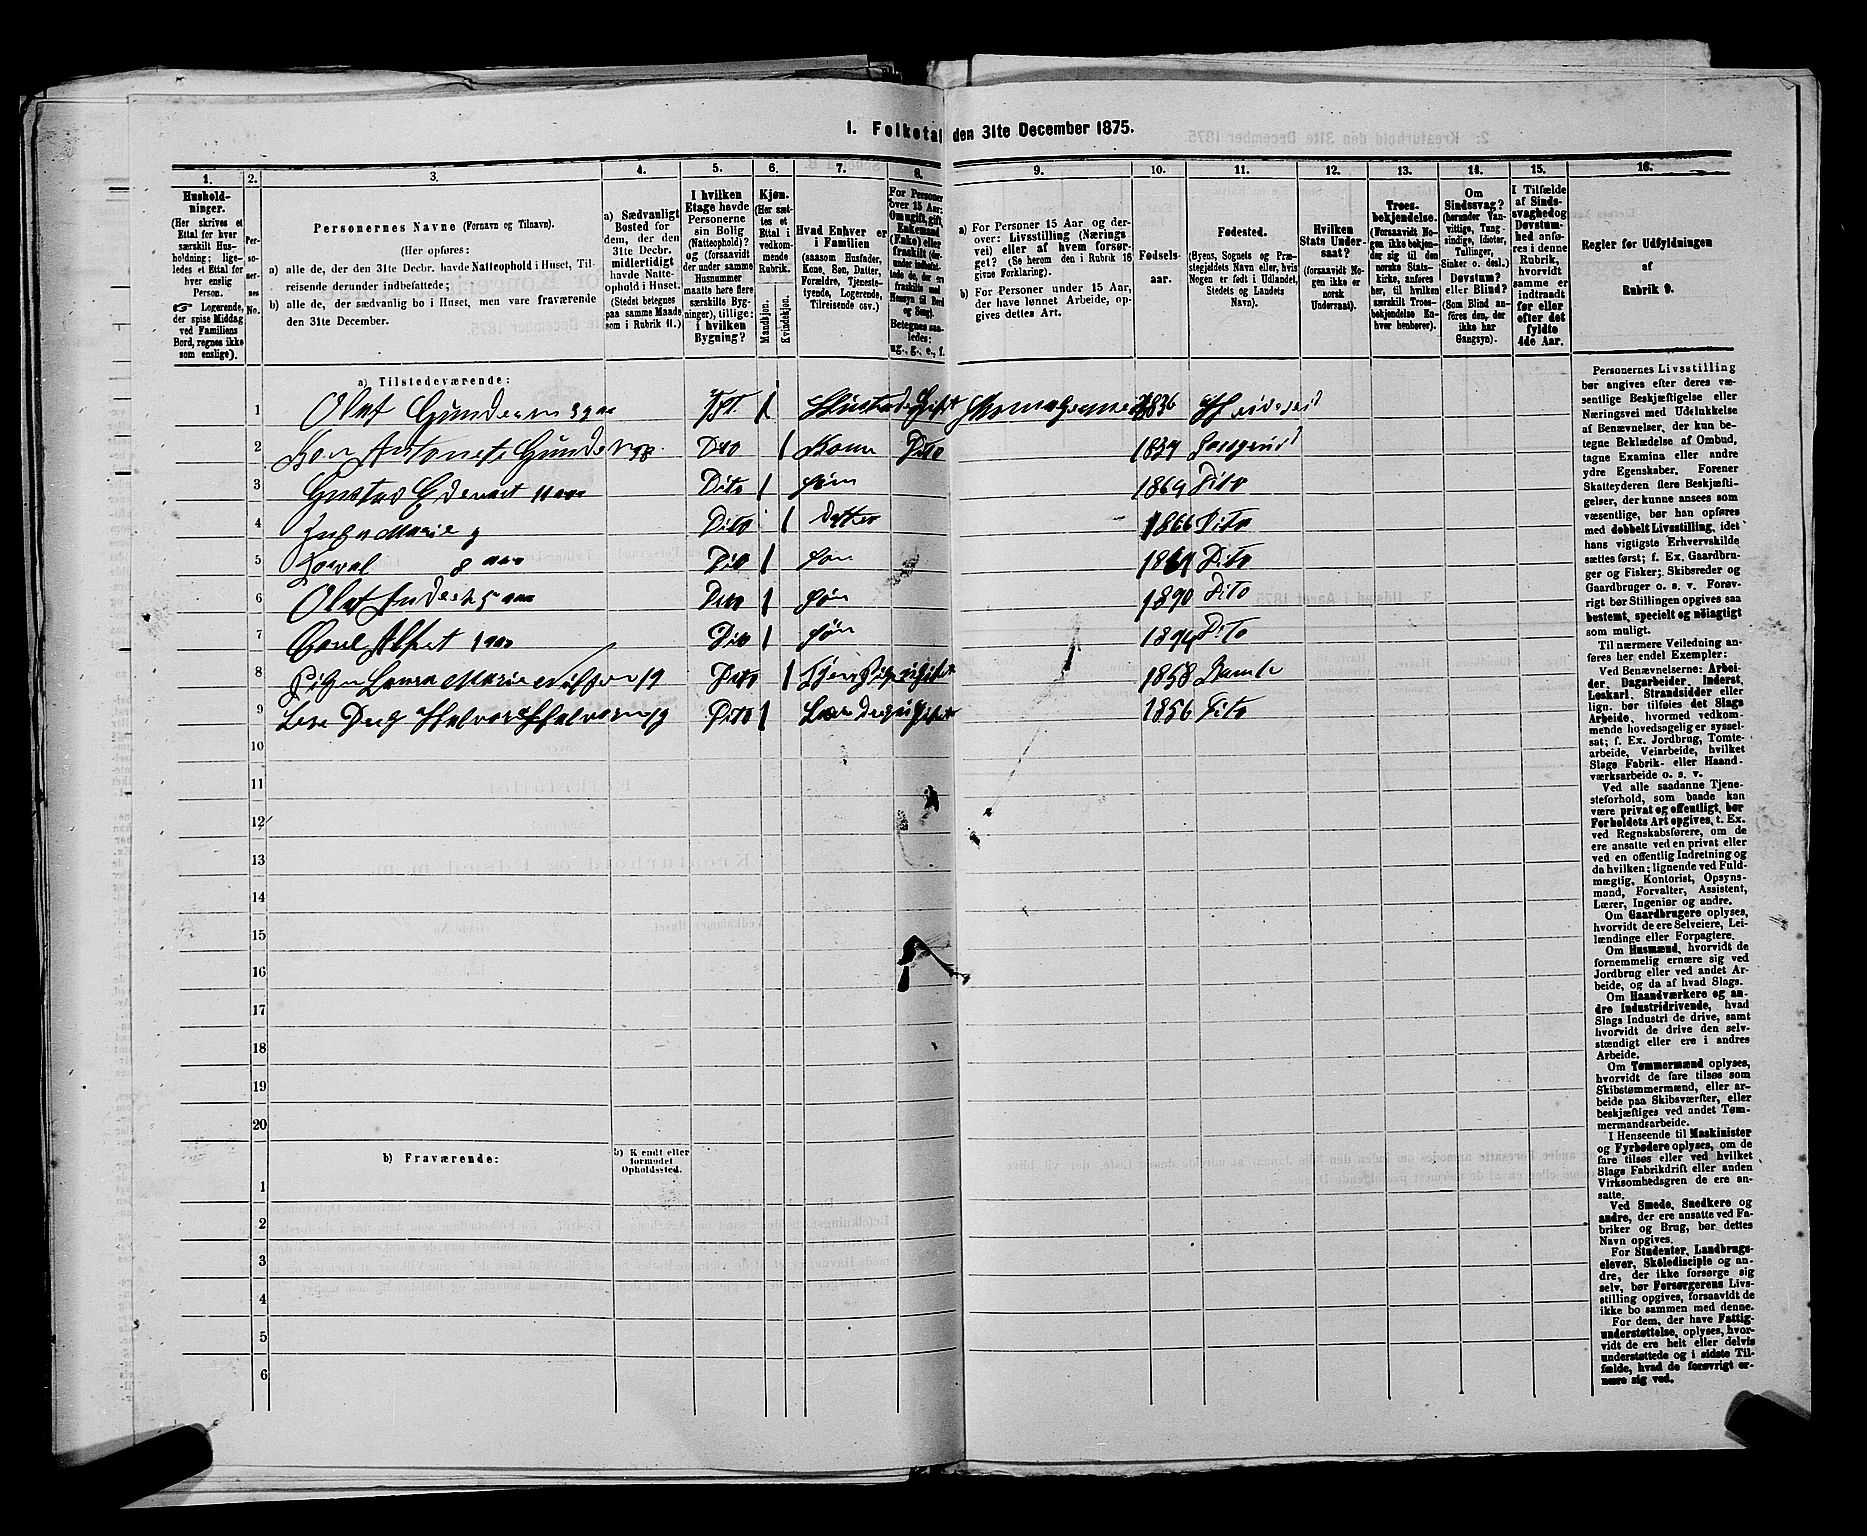 1. Folketal den 31te December 1875.
1. 2. 3. 4. 5. 6. 7. 8. 9. 10. 11. 12. 13. 14. 15. 16.
Hushold-
ninger.
(Her skrives et
Ettal for hver
særskilt Hus-
holdning; lige-
ledes et Ettal for
hver enslig
Person.
☞ Logerende,
der spise Middag
ved Familiens
Bord, regnes ikke
som enslige).
Per-
so-
ner-
nes
No.
Personernes Navne (Fornavn og Tilnavn).
(Her opføres:
a) alle de, der den 31te Decbr. havde Natteophold i Huset, Til-
reisende derunder indbefattede;
b) alle de, der sædvanlig bo i Huset, men vare fraværende
den 31te December.
a) Sædvanligt
Bosted for
dem, der den
31te Decbr.
midlertidigt
havde Natte-
ophold i Huset.
(Stedet betegnes
paa samme Maade
som i Rubrik 11.)
I hvilken
Etage havde
Personerne
sin Bolig
(Natteophold)?
og (forsaavidt
der under samme
Husnummer
maatte høre flere
særskilte Byg-
ninger), tillige:
i hvilken
Bygning?
Kjøn.
(Her sæt-
tes et
Ettal i
vedkom-
mende
Rubrik.
Mandkjøn.
Kvindekjøn.
Hvad Enhver er
i Familien
(saasom Husfader,
Kone, Søn, Datter,
Forældre, Tjeneste-
tyende, Logerende,
Tilreisende osv.)
For Personer
over 15 Aar:
Om ugift, gift,
Enkemand
(Enke) eller
fraskilt (der-
under indbefat-
tede de, der ere
fraskilte med
Hensyn til Bord
og Seng).
Betegnes saa-
ledes:
ug., g., e., f.
a) For Personer 15 Aar og der-
over: Livsstilling (Nærings-
vei) eller af hvem forsør-
get? (Se herom den i Rubrik 16
givne Forklaring).
b) For Personer under 15 Aar,
der have lønnet Arbeide, op-
gives dettes Art.
Fødsels-
aar.
Fødested.
(Byens, Sognets og Præ-
stegjeldets Navn eller, hvis
Nogen er født i Udlandet,
Stedets og Landets
Navn).
Hvilken
Stats Under-
saat?
(forsaavidt No-
gen ikke er
norsk
Undersaat).
Troes-
bekjendelse.
(Forsaavidt No-
gen ikke bekjen-
der sig til den
norske Stats-
kirke, anføres
her, til hvilken
særskilt Troes-
bekjendelse En-
hver henhører).
Om
Sindssvag?
(herunder Van-
vittige, Tung-
sindige, Idioter,
Tullinger,
Sinker o. desl.)
Døvstum?
eller Blind?
(Som Blind an-
føres den, der
ikke har
Gangsyn).
I Tilfælde
af Sinds-
svaghed og
Døvstum-
hed anfø-
res i denne
Rubrik,
hvorvidt
samme er
indtraadt
før eller
efter det
fyldte
4de Aar.
Regler for Udfyldningen
af
Rubrik 9.
a) Tilstedeværende:
1 Olaf Gundersen 39 aar 1 Gift 1836
2 Antonette Gundersen Dito 1 Kone Dito 1839
3 Gustav 11 aar Dito 1 Søn 1864 Dito
4 Marie 9 Dito 1 Datter 1866 Dito
5 8 aar Dito 1 Søn Dito
6 Olaf 5 aar Dito 1 Søn 1870 Dito
7 Carl Alfret 1 aar Dito 1 Søn 1874 Dito
8 Laura Marie Dito 1 1858 Bamle
9 Dito 1 1856 Dito
10
11
12
13
14
15
16
17
18
19
20
b) Fraværende:
b) Kendt eller
formodet
Opholdssted.
1
2
3
4
5
6
Personernes Livsstilling
bør angives efter deres væ-
sentlige Beskjæftigelse eller
Næringsvei med Udelukkelse
af Benævnelser, der kun be-
tegne Beklædelse af Ombud,
tagne Examina eller andre
ydre Egenskaber. Forener
Skatteyderen flere Beskjæfti-
gelser, der kunne ansees som
væsentlige, bør han opføres
med dobbelt Livsstilling, idet
hans vigtigste Erhvervskilde
sættes først; f. Ex. Gaardbru-
ger og Fisker; Skibsreder og
Gaardbruger o. s. v. Forøv-
rigt bør Stillingen opgives saa
bestemt, specielt og nøiagtigt
som muligt.
Til nærmere Veiledning an-
føres her endel Exempler:
Ved Benævnelserne: Arbei-
der, Dagarbeider, Inderst,
Løskarl, Strandsidder eller
lign. bør tilføies det Slags
Arbeide, hvormed vedkom-
mende hovedsagelig er syssel-
sat; f. Ex. Jordbrug, Tomte-
arbeide, Veiarbeide, hvilket
Slags Fabrik- eller Haand-
værksarbeide o. s. v.
Ved alle saadanne Tjene-
steforhold, som baade kan
være privat og offentligt, bør
Forholdets Art opgives, t. Ex.
ved Regnskabsførere, om de
ere ansatte ved en privat eller
ved en offentlig Indretning og
da hvilken; lignende ved Fuld-
mægtig, Kontorist, Opsyns-
mand, Forvalter, Assistent,
Lærer, Ingeniør og andre.
Om Gaardbrugere oplyses,
hvorvidt de ere Selveiere, Lei-
lændinge eller Forpagtere.
Om Husmænd, hvorvidt de
fornemmelig ernære sig ved
Jordbrug eller ved andet Ar-
beide, og da af hvad Slags.
Om Haandværkere og an-
dre Industridrivende, hvad
Slags Industri de drive, samt
hvorvidt de drive den selv-
stændigt eller ere i andres
Arbeide.
Om Tømmermænd oplyses,
hvorvidt de fare tilsøs som
Skibstømmermænd, eller ar-
beide paa Skibsværfter, eller
beskjæftiges ved andet Tøm-
mermandsarbeide.
I Henseende til Maskinister
og Fyrbødere oplyses, om de
fare tilsøs eller ved hvilket
Slags Fabrikdrift eller anden
Virksomhedsgren de ere an-
satte.
Ved Smede, Snedkere og
andre, der ere ansatte ved Fa-
briker og Brug, bør dettes
Navn opgives.
For Studenter, Landbrugs-
elever, Skoledisciple og an-
dre, der ikke forsørge sig
selv, bør Forsørgerens Livs-
stilling opgives, forsaavidt de
ikke bo sammen med denne.
For dem, der have Fattig-
understøttelse, oplyses, hvor-
vidt de ere helt eller delvis
understøttede og i sidste Til-
fælde, hvad de forøvrigt er-
nære sig ved.